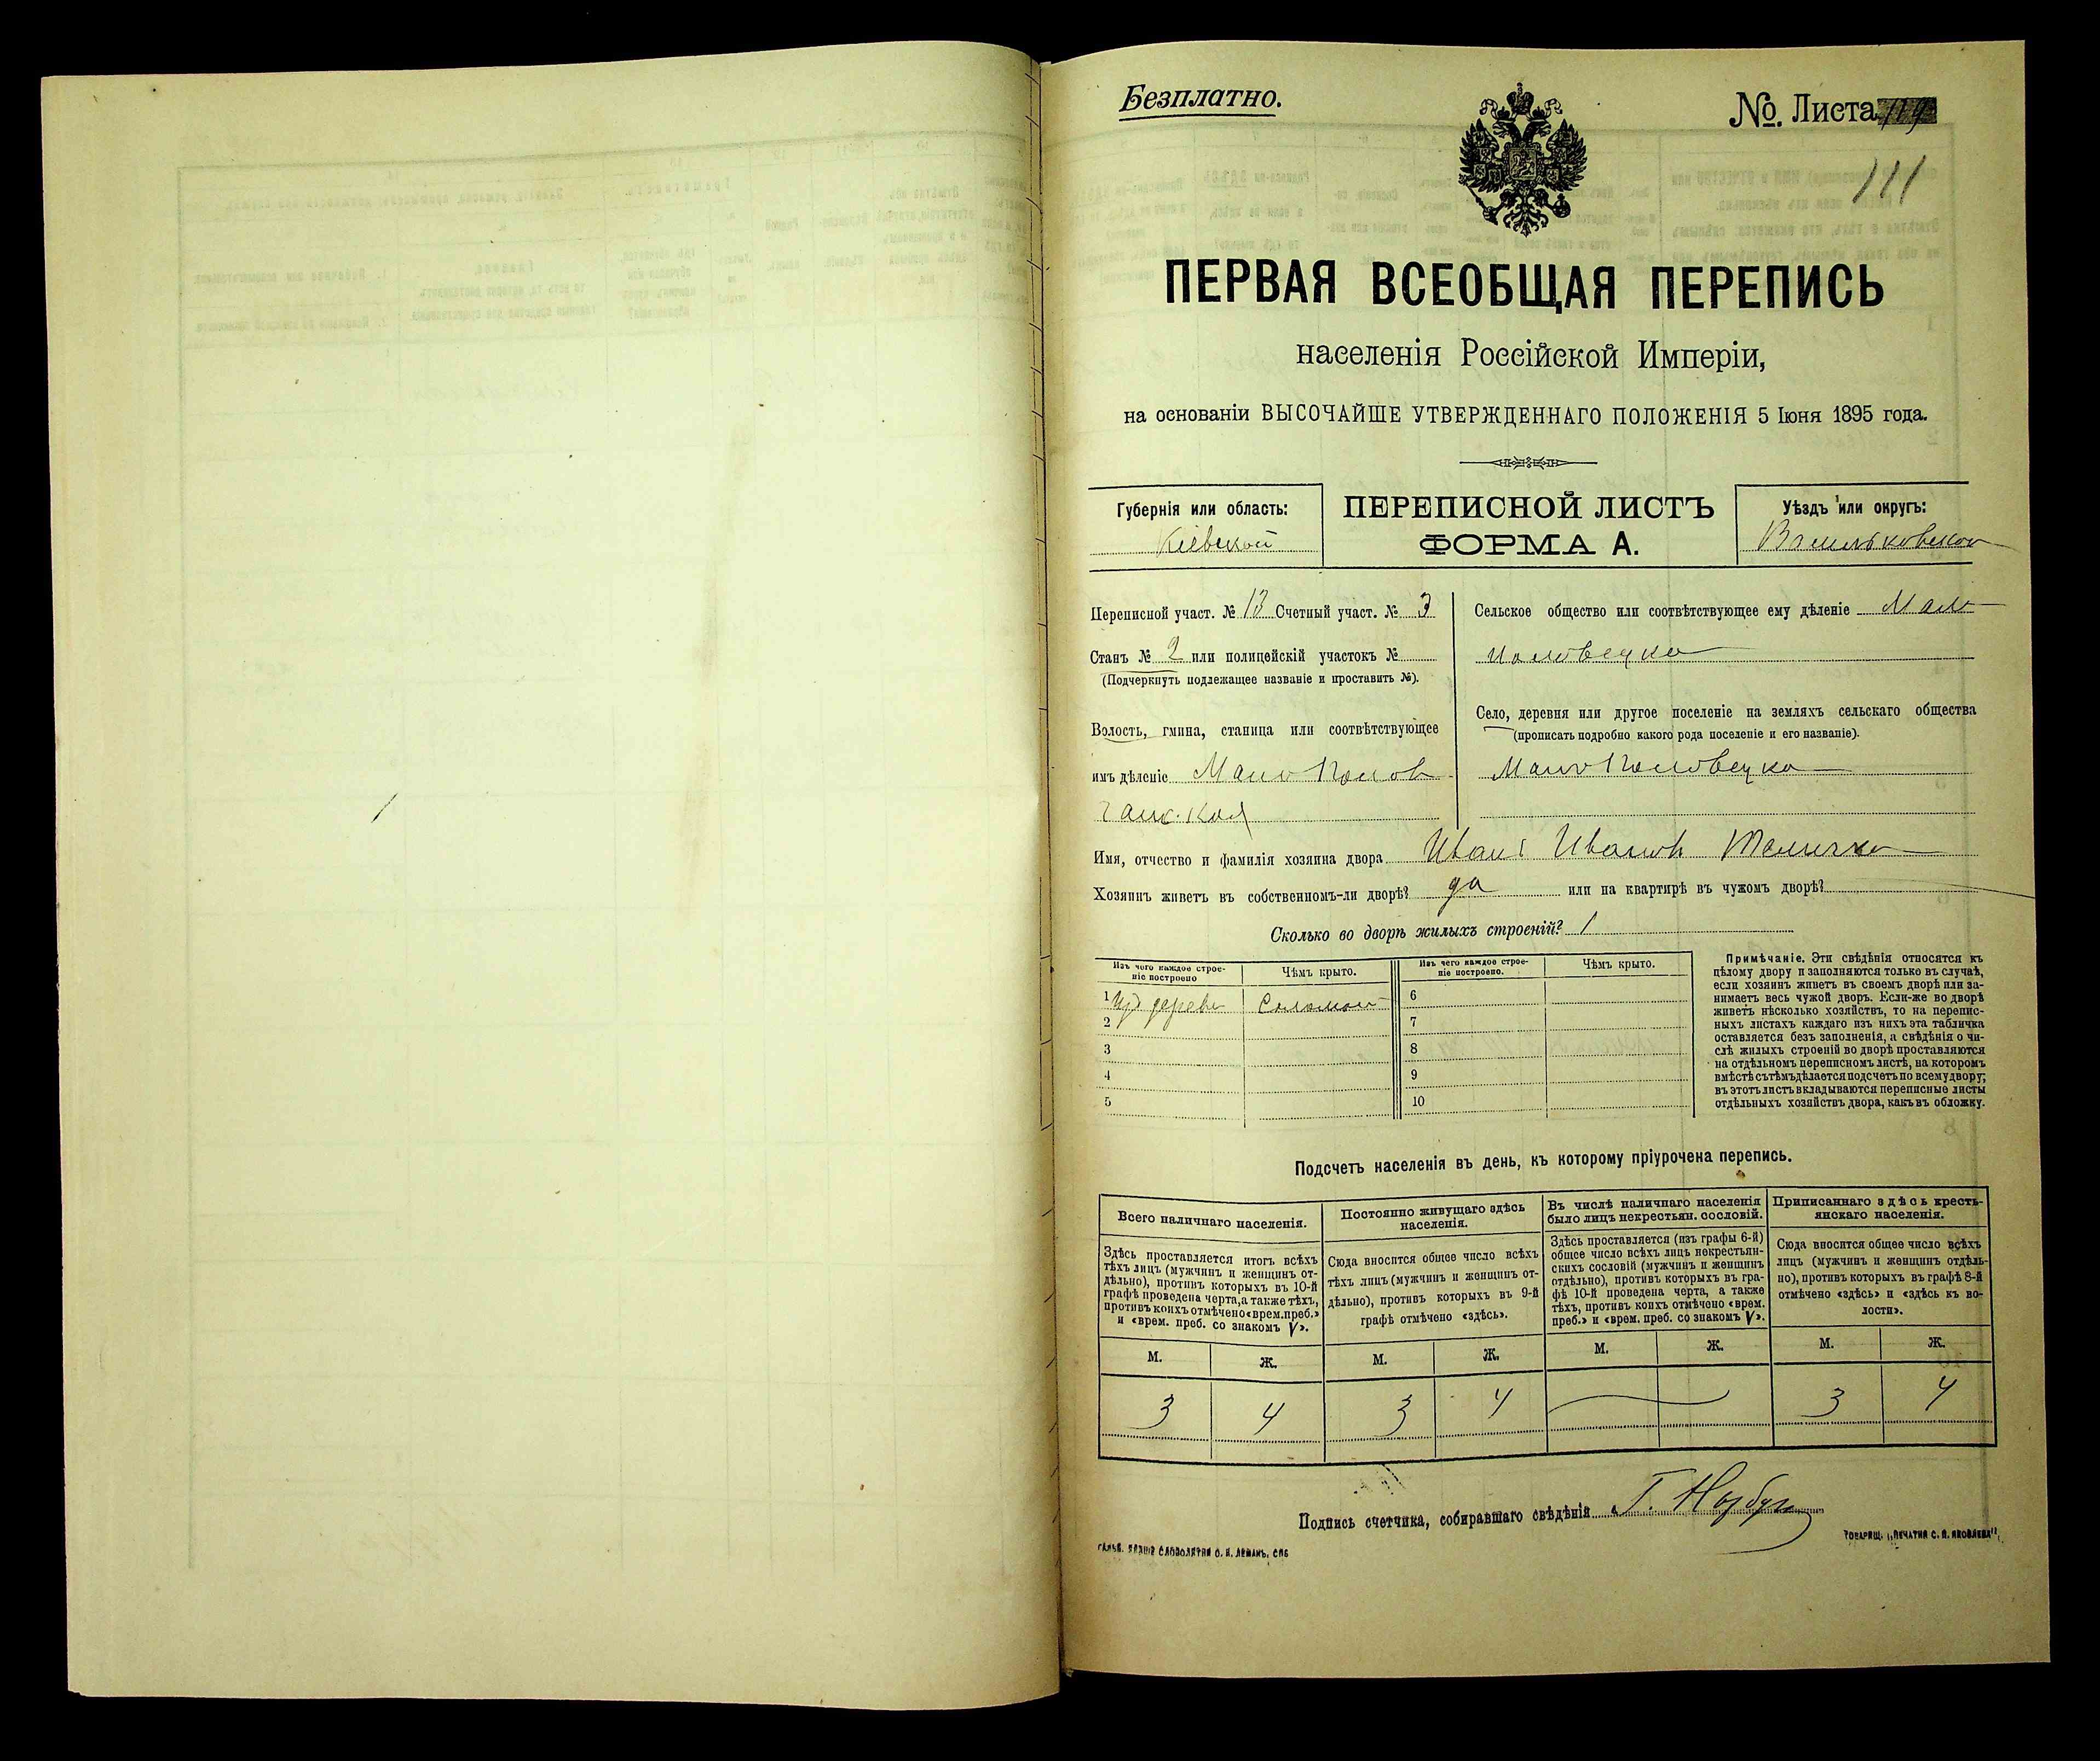 Безплатно.
No. Листа
111
ПЕРВАЯ ВСЕОБЩАЯ ПЕРЕПИСЬ
населенія Россійской Имперіи,
на основаніи ВЫСОЧАЙШЕ УТВЕРЖДЕННАГО ПОЛОЖЕНІЯ 5 Іюня 1895 года.
Губернія или область:
Кіевской
ПЕРЕПИСНОЙ ЛИСТЪ
ФОРМА А.
Уѣздъ или округъ:
Васильковской
Переписной участ. № 13 Счетный участ. № 3
Станъ № 2 или полицейскій участокъ №
(Подчеркнуть подлежащее названіе и проставить №).
Волость, гмина, станица или соотвѣтствующее
имъ дѣленіе Мало Полов
Сельское общество или соотвѣтствующее ему дѣленіе Мало
половецко
Село, деревня или другое поселеніе на земляхъ сельскаго общества
(прописать подробно какого рода поселеніе и его названіе).
Мало Половецко
Имя, отчество и фамилія хозяина двора Иванъ Иванов
Хозяинъ живетъ въ собственномъ-ли дворѣ? да или на квартирѣ въ чужомъ дворѣ?
Сколько во дворѣ жилыхъ строеній? 1
Изъ чего каждое строе-
ніе построено
Чѣмъ крыто.
Изъ чего каждое строе-
ніе построено.
Чѣмъ крыто.
1 Изъ дерева Соломою 6
2 7
3 8
4 9
5 10
Примѣчаніе. Эти свѣдѣнія относятся къ
цѣлому двору и заполняются только въ случаѣ,
если хозяинъ живетъ въ своемъ дворѣ или за-
нимаетъ весь чужой дворъ. Если-же во дворѣ
живетъ нѣсколько хозяйствъ, то на перепис-
ныхъ листахъ каждаго изъ нихъ эта табличка
оставляется безъ заполненія, а свѣдѣнія о чи-
слѣ жилыхъ строеній во дворѣ проставляются
на отдѣльномъ переписномъ листѣ, на которомъ
вмѣстѣ съ тѣмъ дѣлается подсчетъ по всему двору;
въ этотъ листъ вкладываются переписные листы
отдѣльныхъ хозяйствъ двора, какъ въ обложку.
Подсчетъ населенія въ день, къ которому пріурочена перепись.
Всего наличнаго населенія.
Здѣсь проставляется итогъ всѣхъ
тѣхъ лицъ (мужчинъ и женщинъ от-
дѣльно), противъ которыхъ въ 10-й
графѣ проведена черта, а также тѣхъ,
противъ коихъ отмѣчено «врем. преб.»
и «врем. преб. со знакомъ V».
Постоянно живущаго здѣсь
населенія.
Сюда вносится общее число всѣхъ
тѣхъ лицъ (мужчинъ и женщинъ от-
дѣльно), противъ которыхъ въ 9-й
графѣ отмѣчено «здѣсь».
Въ числѣ наличнаго населенія
было лицъ некрестьян. сословій.
Здѣсь проставляется (изъ графы 6-й)
общее число всѣхъ лицъ некрестьян-
скихъ сословій (мужчинъ и женщинъ
отдѣльно), противъ которыхъ въ гра-
фѣ 10-й проведена черта, а также
тѣхъ, противъ коихъ отмѣчено «врем.
преб.» и «врем. преб. со знакомъ V».
Приписаннаго здѣсь кресть-
янскаго населенія.
Сюда вносится общее число всѣхъ
лицъ (мужчинъ и женщинъ отдѣль-
но), противъ которыхъ въ графѣ 8-й
отмѣчено «здѣсь» и «здѣсь къ во-
лости».
М. Ж. М. Ж. М. Ж. М. Ж.
3 4 3 4 3 4
Подпись счетчика, собиравшаго свѣдѣнія
Товарищ. „Печатня С. П. Яковлева“.